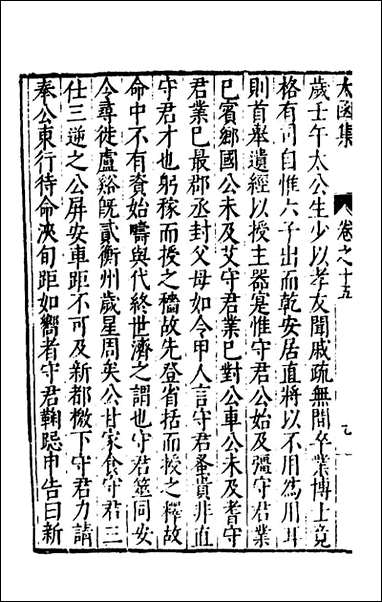 太函集
卷之十五
歲壬午太公生少以孝友聞戚疏無間卒業博士竟
格有司自惟六子出而乾安居直將以不用為用耳
則首舉遺經以授主器寔惟守君公始及彊守君業
已賓鄉國公未及艾守君業已對公車公未及耆守
君業已最郡丞封父母如令甲人言守君蚤貴非直
守君才也躬稼而授之穡故先登省括而授之釋故
命中不有資始疇與代終世濟之謂也守君筮同安
令尋徙盧谿既貳衡州歲星周矣公甘家食守君三
仕三逆之公屏安車距不可及新都檄下守君力請
奉公東行待命浹旬距如嚮者守君鞠跽申告曰新